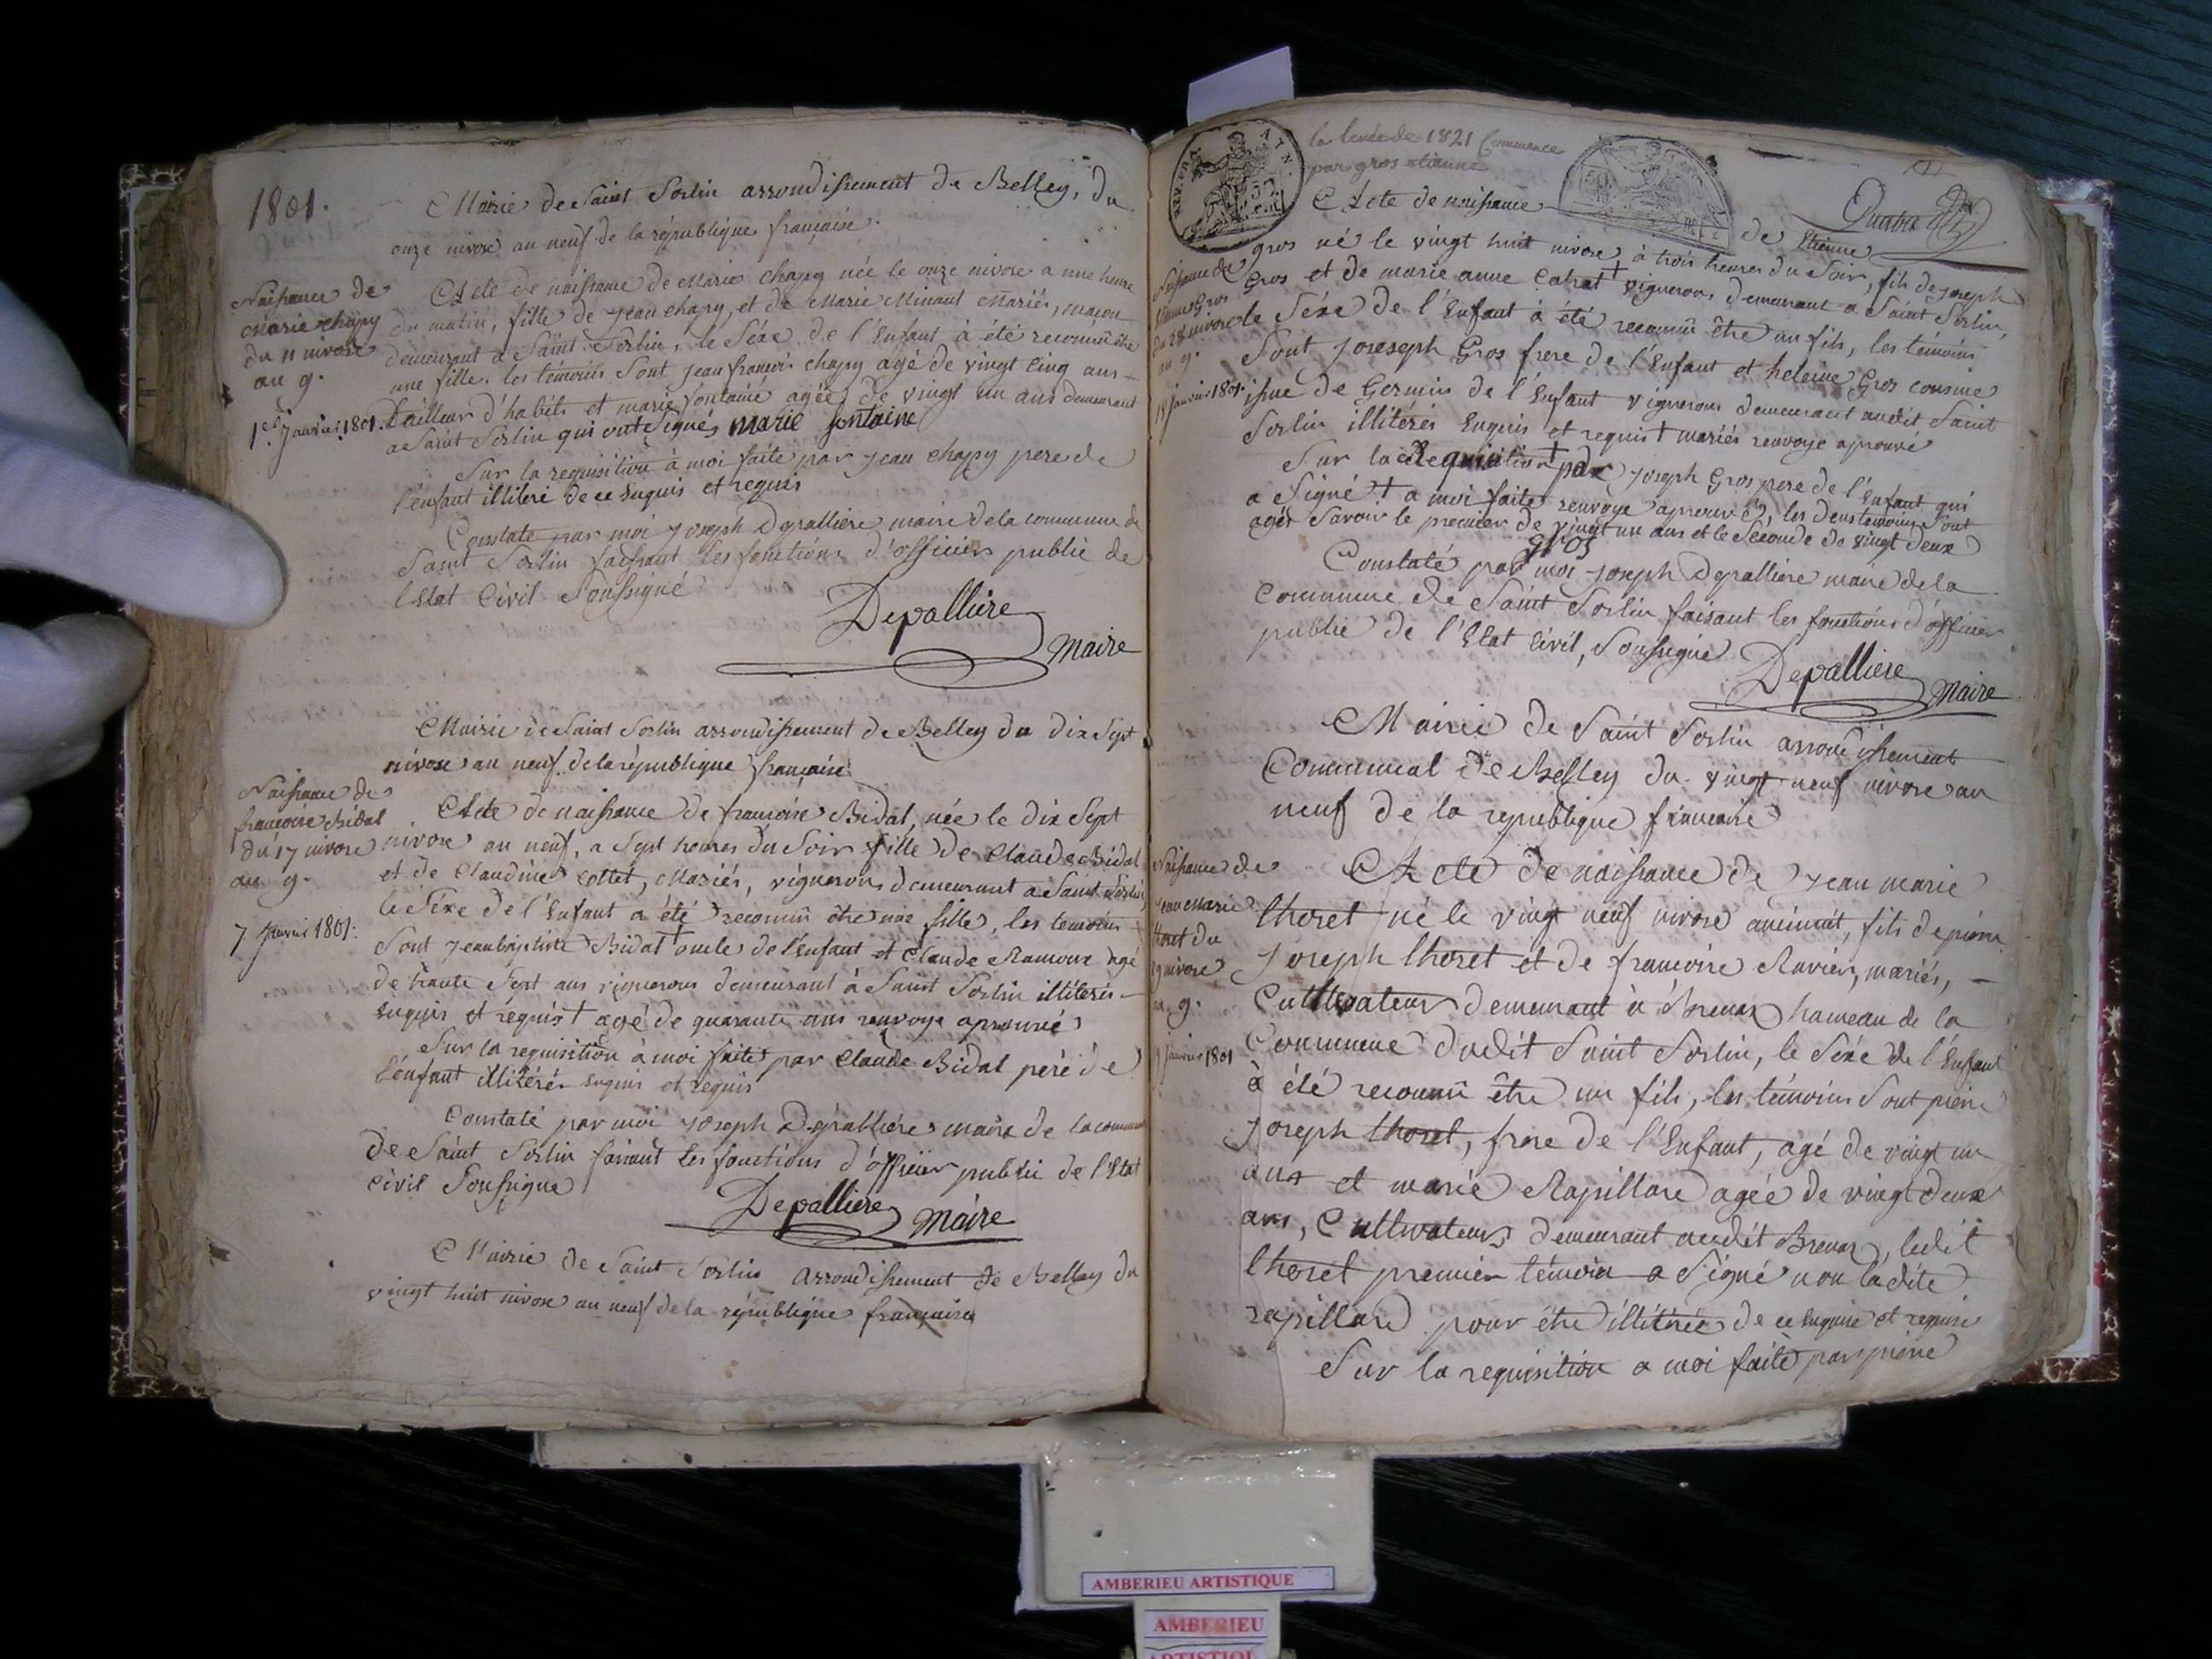 1801.
Mairie de Saint Sorlin arrondissement de Belley, du
onze nivose an neuf de la république française.
Naissance de
Marie chapy
du 11 nivose
an 9.
1er Janvier 1801.
Acte de naissance de Marie chapy née le onze nivose a une heure
du matin, fille de Jean chapy, et de Marie Minaut Mariés, maçon
demeurant a Saint Sorlin, le Séxe de l'Enfant à été reconnû être
une fille, les témoins Sont Jean françois chapy agé de vingt Cinq ans
tailleur d'habits et marie fontaine agée de vingt un ans demeurant
a Saint Sorlin qui ont Signés marie fontaine
Sur la requisition à moi faite par Jean chapy pere de
l'enfant illiteré de ce Enquis et requis
Constaté par moi Joseph Depalliere maire de la commune de
Saint Sorlin faisant les fonctions d'officier public de
l'Etat Civil Soussigné
Depalliere
Maire
Mairie de Saint Sorlin arrondissement de Belley du dix Sept
nivose an neuf de la république française
Naissance de
francoise Bidal
du 17 nivose
an 9.
7 Janvier 1801.
Acte de naissance de francoise Bidal, née le dix Sept
nivose an neuf, a Sept heures du Soir fille de Claude Bidal
et de Claudine Cottet, Mariés, vignerons demeurant a Saint Sorlin
le Séxe de l'Enfant a été reconnû être une fille, les temoins
Sont Jean baptiste Bidal † oncle de l'Enfant et Claude Ramoux agé
de trante Sept ans vignerons demeurant à Saint Sorlin illiterés
enquis et réquis † agé de quarante ans renvoye aprouvé
Sur la requisition à moi faite par Claude Bidal peré de
l'énfant illitérés enquis et requis
Constaté par moi Joseph Depalliére maire de la commune
de Saint Sorlin faisant les fonctions d'officier public de l'Etat
Civil Soussigné
Depalliere Maire
Mairie de Saint Sorlin Arrondissement de Belley du
vingt huit nivose an neuf de la république française
la levée de 1821 Commence
par gros etienne
Acte de naissance de Etienne
Quatre
Naissance de
Etienne Gros
du 28 nivose
an 9.
18 Janvier 1801.
gros né le vingt huit nivose, à trois heures du Soir, fils de Joseph
Gros et de marie anne † vignerons demeurant a Saint Sorlin,
le Séxe de l'Enfant à été reconnû être un fils, les témoins
Sont Joseseph Gros frere de l'Enfant et heleine Gros cousine
issue de Germin de l'Enfant vignerons demeurant audit Saint
Sorlin illitérés Enquis et requis † mariés renvoye aprouvé
Sur la Requisition † par Joseph Gros pere de l'Enfant qui
a Signé † a moi faite renvoye aprouvé, les deux temoins Sont
agés Savoir le premier de vingt un ans et le Seconde de vingt deux
gros
Constaté par moi Joseph Depalliere maire de la
Commune de Saint Sorlin faisant les fonctions d'officier
public de l'Etat Civil, Soussigné
Depalliere Maire
Mairie de Saint Sorlin arrondissement
Communal de Belley du vingt neuf nivose an
neuf de la republique francaise
Naissance de
Jean Marie
thoret du
29 nivose
an 9.
Janvier 1801
Acte de naissance de Jean marie
thoret né le vingt neuf nivose aminuit, fils de pierre
Joseph thoret et de francoise Ravier, mariés,
Cultivateurs demeurant à Brenaz hameau de la
Commune dudit Saint Sorlin, le Séxe de l'Enfant
à été reconnû être un fils, les témoins Sont pierre
Joseph thoret, frere de l'Enfant, agé de vingt un
ans et marie Rapillard agée de vingt deux
ans, Cultivateurs demeurant audit Brenaz, ledit
thoret premier témoin a Signé non ladite
rapillard pour être illitérée de ce enquise et requise
Sur la requisition a moi faite par pierre
AMBERIEU ARTISTIQUE
AMBERIEU
ARTISTIQUE